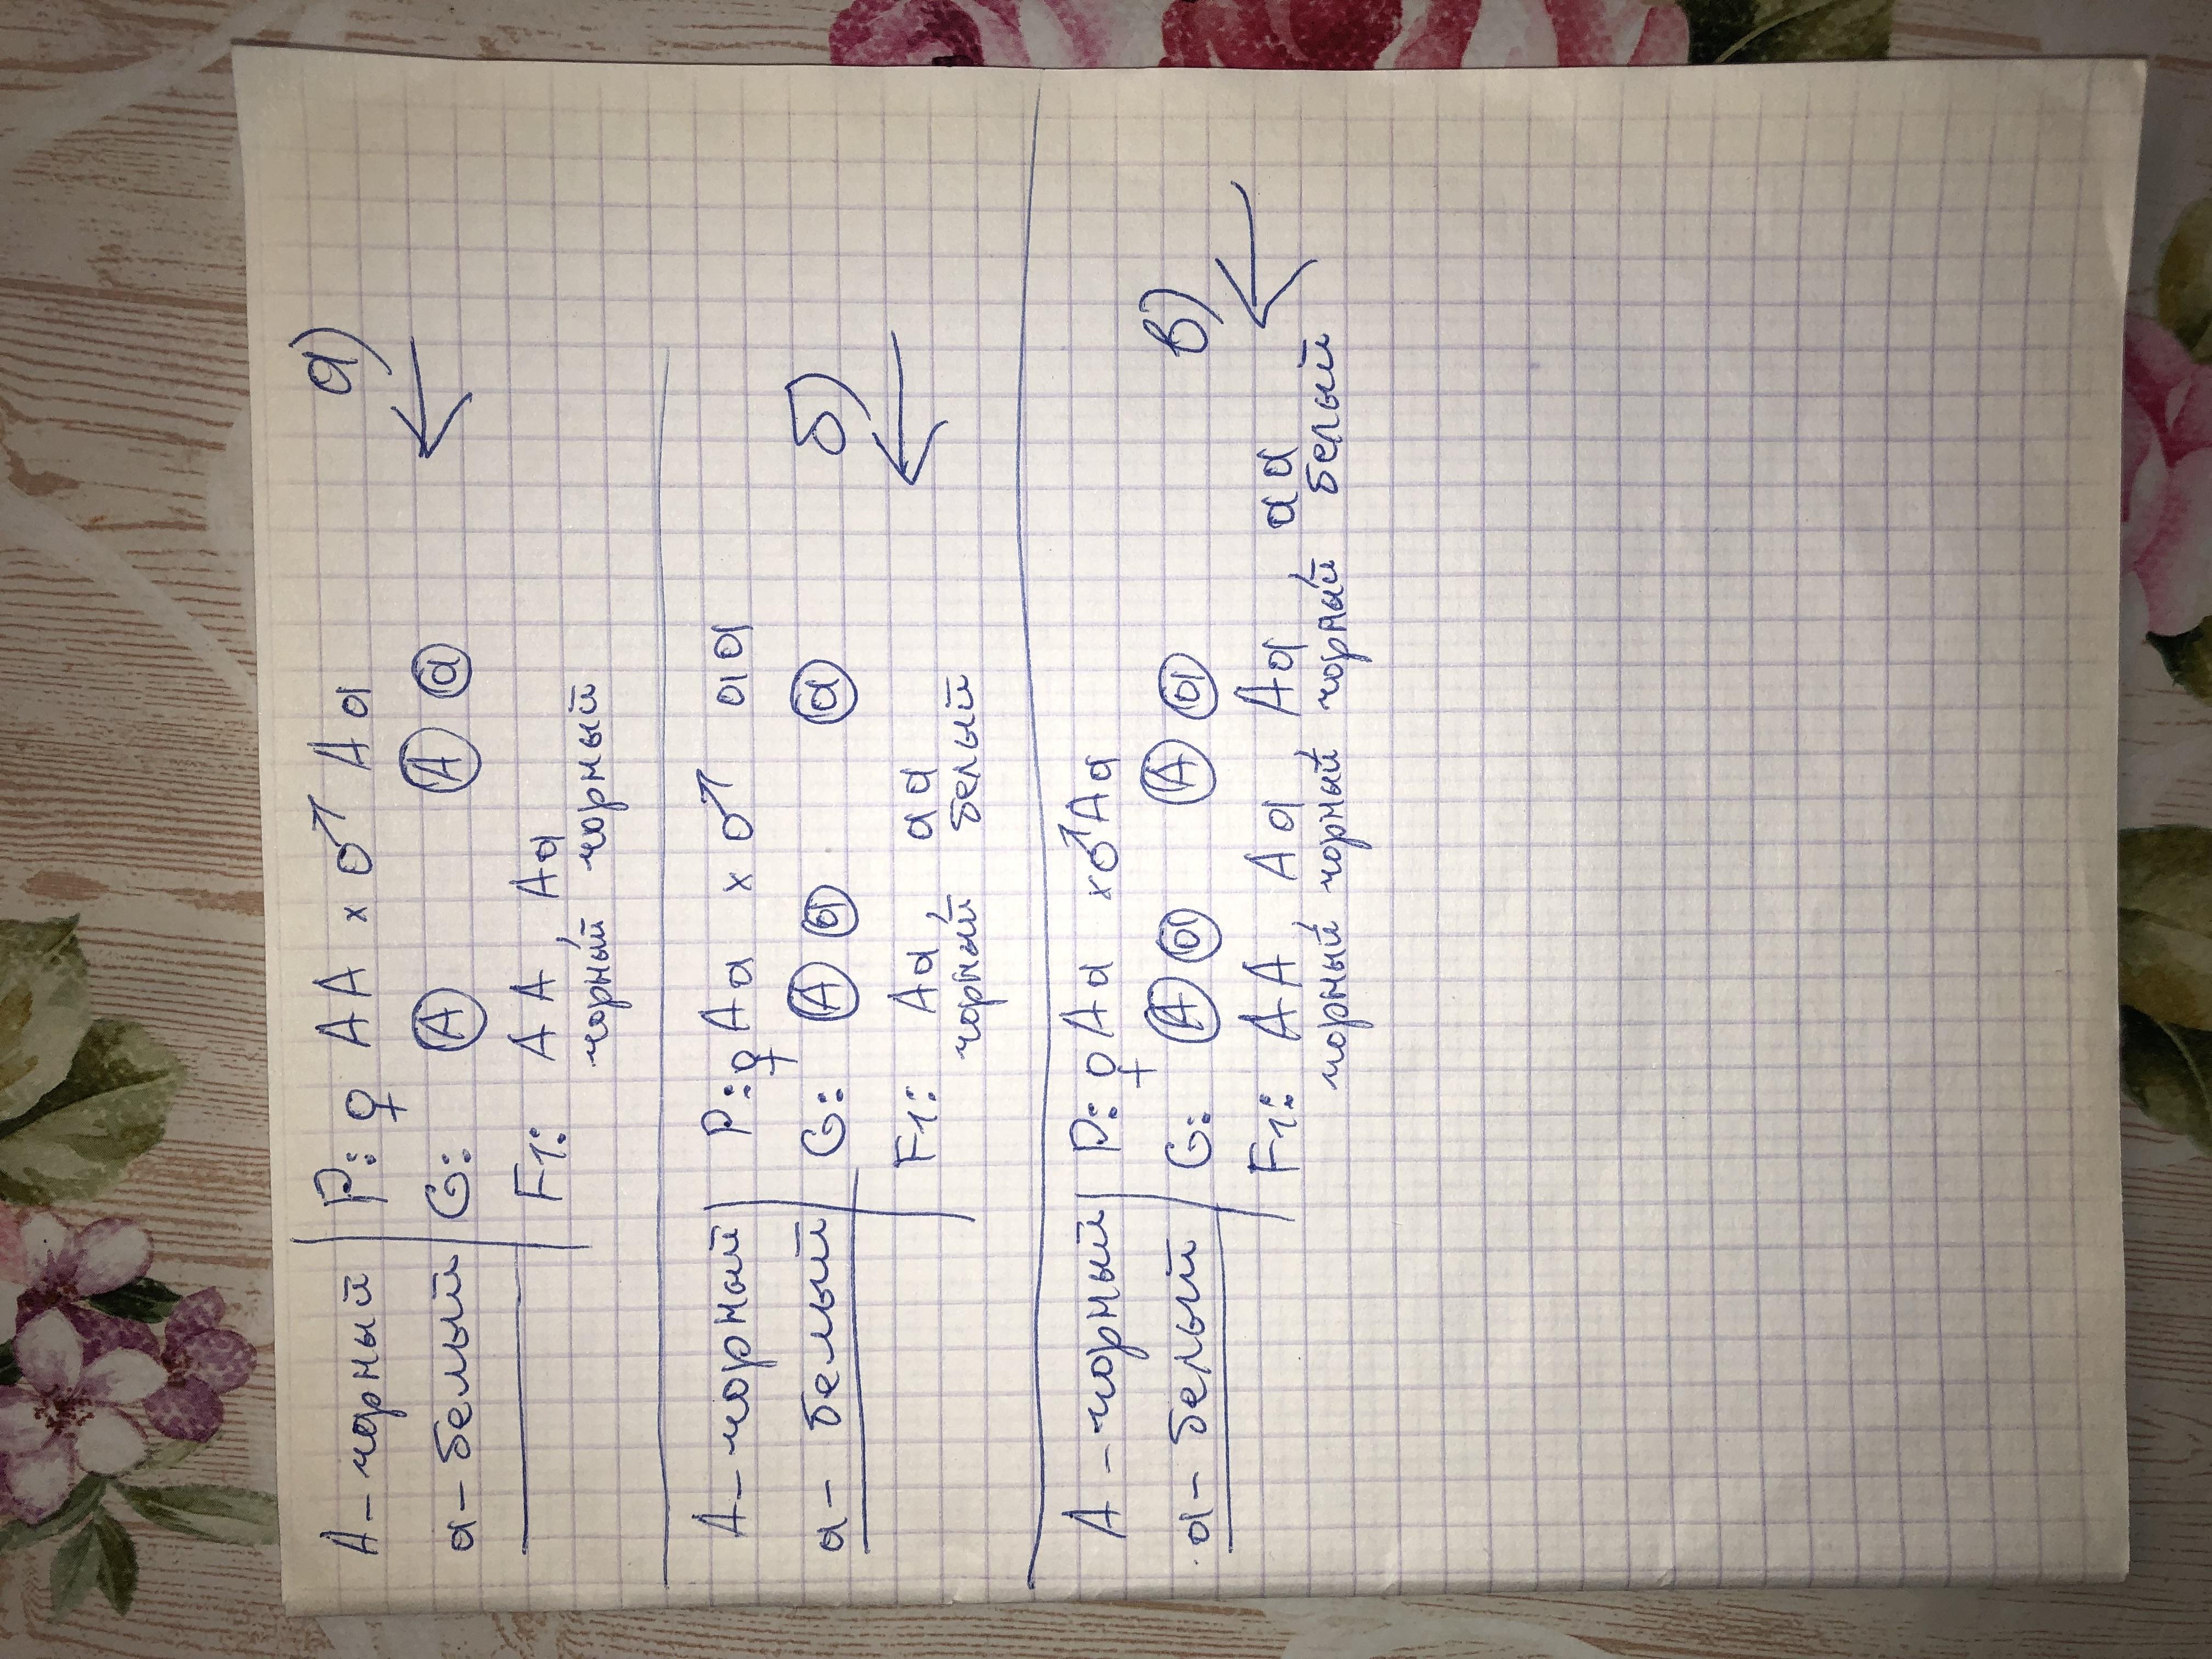 А - чорный | P: ♀ AA × ♂ Aa а)
а - белый | G: (A) (A) (a)
F1: AA Aa
чорный чорный
А - чорный | P: ♀ Aa × ♂ aa б)
а - белый | G: (A) (a) (a)
F1: Aa aa
чорный белый
А - чорный | P: ♀ Aa × ♂ Aa в)
а - белый | G: (A) (a) (A) (a)
F1: AA Aa Aa aa
чорный чорный чорный белый